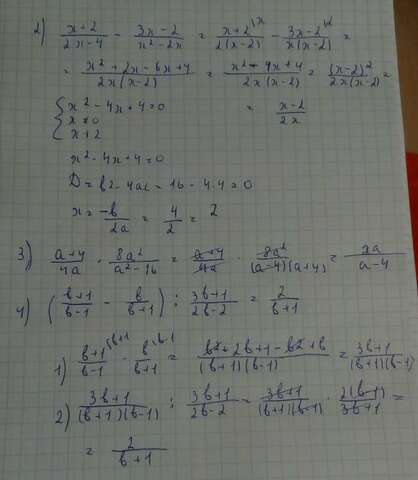 2) \frac{x+2}{2x-4} - \frac{3x-2}{x^2-2x} = \frac{x+2}{2(x-2)}^{\setminus x} - \frac{3x-2}{x(x-2)}^{\setminus 2} =
= \frac{x^2+2x-6x+4}{2x(x-2)} = \frac{x^2-4x+4}{2x(x-2)} = \frac{(x-2)^2}{2x(x-2)} =
{ x^2-4x+4=0 = \frac{x-2}{2x}
x≠0
x≠2
x^2-4x+4=0
D=b^2-4ac=16-4·4=0
x = \frac{-b}{2a} = \frac{4}{2} = 2
3) \frac{a+4}{4a} · \frac{8a^2}{a^2-16} = \frac{a+4}{4a} · \frac{8a^2}{(a-4)(a+4)} = \frac{2a}{a-4}
4) (\frac{b+1}{b-1} - \frac{b}{b+1}) : \frac{3b+1}{2b-2} = \frac{2}{b+1}
1) \frac{b+1}{b-1}^{\setminus b+1} - \frac{b}{b+1}^{\setminus b-1} = \frac{b^2+2b+1-b^2+b}{(b+1)(b-1)} = \frac{3b+1}{(b+1)(b-1)}
2) \frac{3b+1}{(b+1)(b-1)} : \frac{3b+1}{2b-2} = \frac{3b+1}{(b+1)(b-1)} · \frac{2(b-1)}{3b+1} =
= \frac{2}{b+1}